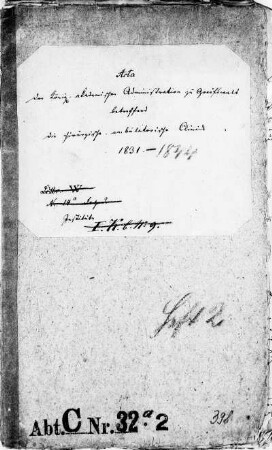 Acta
der König. akademischen Administration zu Greifswald
betreffend
die chirurgische ambulatorische Clinic
1831.-1844
Nr.
Institute
Heft 2
398
Abt. C Nr. 32 a. 2